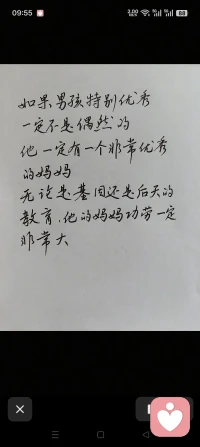 09:55
5G
5G
如果男孩特别优秀
一定不是偶然的
他一定有一个非常优秀
的妈妈
无论是基因还是后天的
教育，他的妈妈功劳一定
非常大